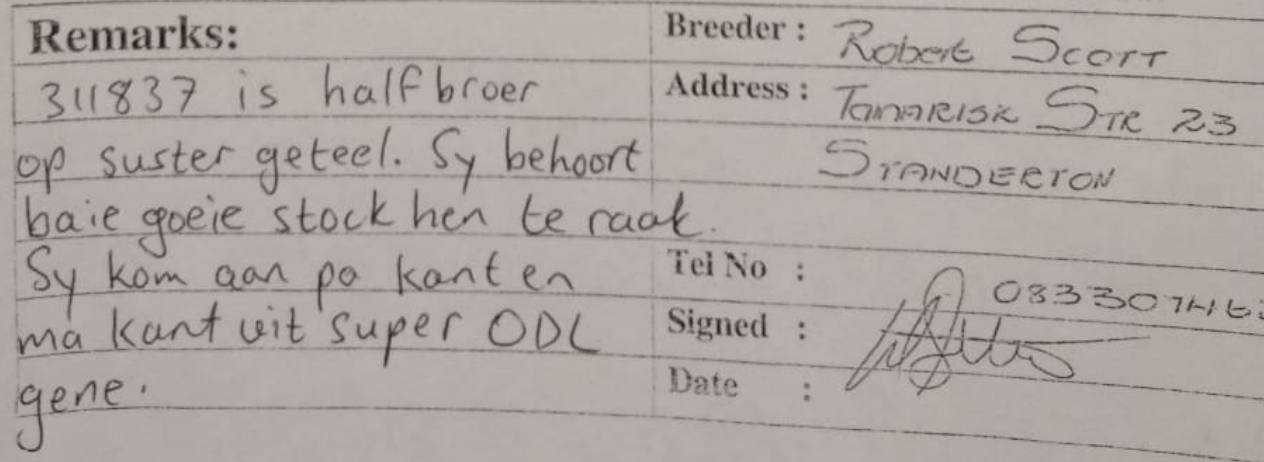 Remarks:
311837 is halfbroer
op suster geteel. Sy behoort
baie goeie stock hen te raak.
Sy kom aan pa kant en
ma kant uit super ODL
gene.
Breeder : Robert Scott
Address : Tamarisk Str 23
Standerton
Tel No :
Signed :
Date :